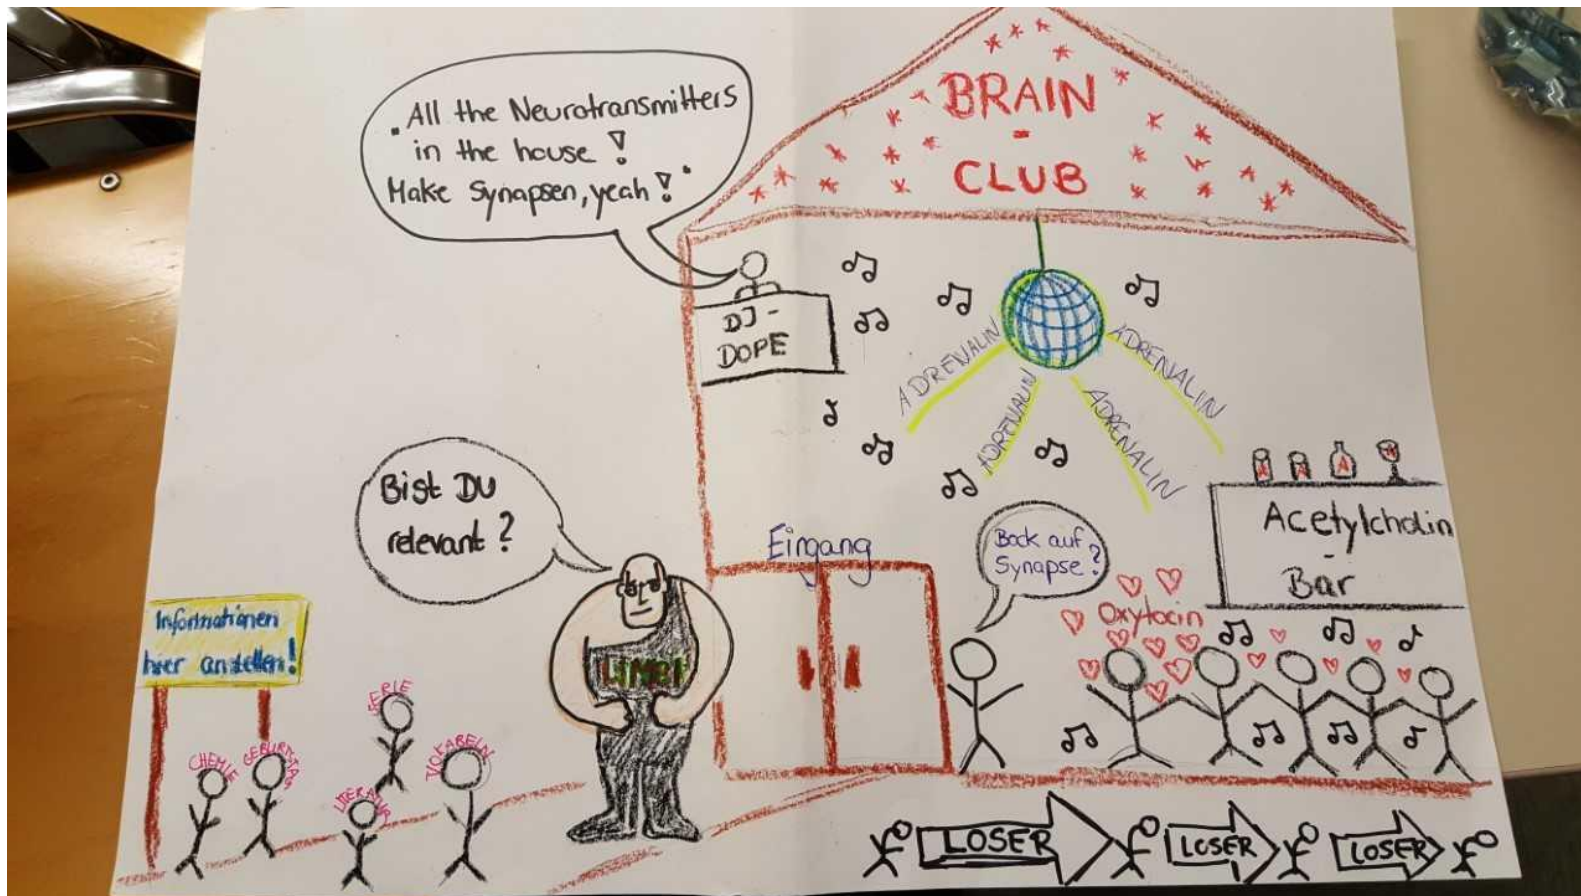 "All the Neurotransmitters
in the house!
Make Synapsen, yeah!"
BRAIN
-
CLUB
DJ-
DOPE
ADRENALIN
ADRENALIN
ADRENALIN
ADRENALIN
Bist DU
relevant?
Eingang
Bock auf
Synapse?
Acetylcholin
-
Bar
Oxytocin
Informationen
hier anstellen!
LIMBI
SERIE
CHEMIE
GEBURTSTAG
LITERATUR
VOKABELN
LOSER
LOSER
LOSER